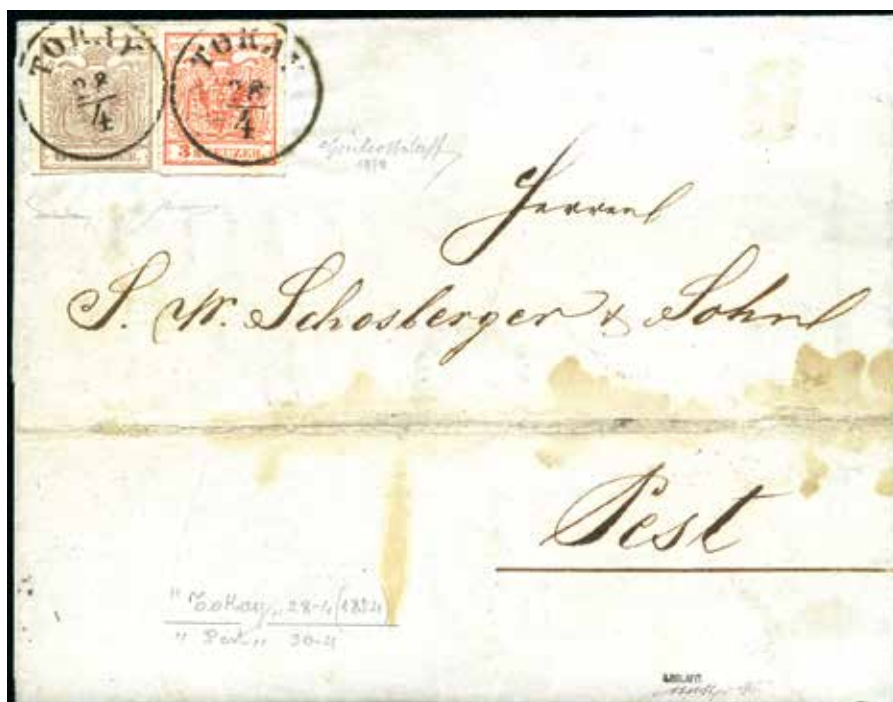 TOKAY TOKAY
28 28
4 4
3 KREUZER.
Herren
S. W. Schosberger & Sohn
Pest
"Tokay" 28-4 (1854)
"Pest" 30-4